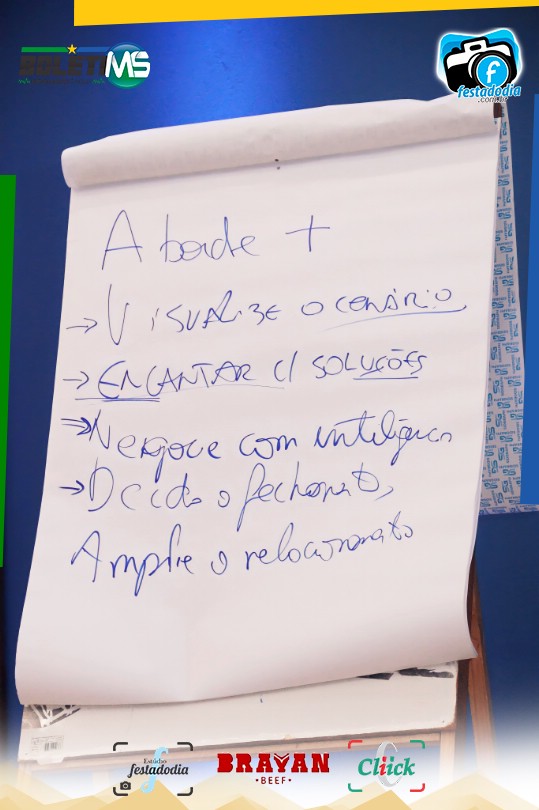 BOLETIMS
festadodia
.com.br
Aborde +
→ VISUALIZE O CENÁRIO
→ ENCANTAR C/ SOLUÇÕES
→ Negocie com inteligência
→ Decida o fechamento,
Amplie o relacionamento
Estúdio
festadodia
BRAYAN
BEEF
Cliick